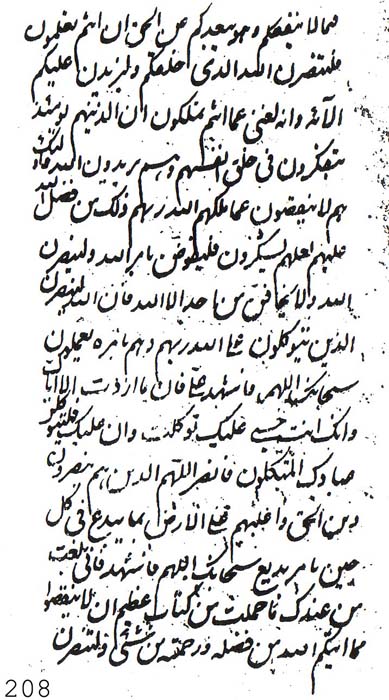 مما لا ينفعكم وهو يبعدكم عن الحق ان انتم تعلمون
فلتنصرن الله الذي خلقكم وليزيدن عليكم
الآئه وانه لغني عما انتم تملكون ان الذينهم
يتفكرون في خلق انفسهم وهم يريدون الله
هم لا ينقصون عما ملكهم الله ربهم ذلك من فضل الله
عليهم لعلهم يشكرون بامر الله ولينصرن
الله ولا يخافن من احد الا الله فان الله لينصرن
الذين يتوكلون على الله ربهم وهم بامره يعملون
سبحانك اللهم فاشهد علي فان ما اردت الا اياك
وانك انت حسبي عليك توكلت وان عليك فليتوكلن
عبادك المتوكلون فانصر اللهم الذين هم ينصرون
دين الحق واغلبهم على الارض بما يبدع في كل
حين بامر بديع سبحانك اللهم فاشهد فاني بلغت
من عندك ما حملت من كتاب عظيم ان لا ينقصوا
مما اتيكم الله من فضله ورحمته من شئ ولتنصرن
208